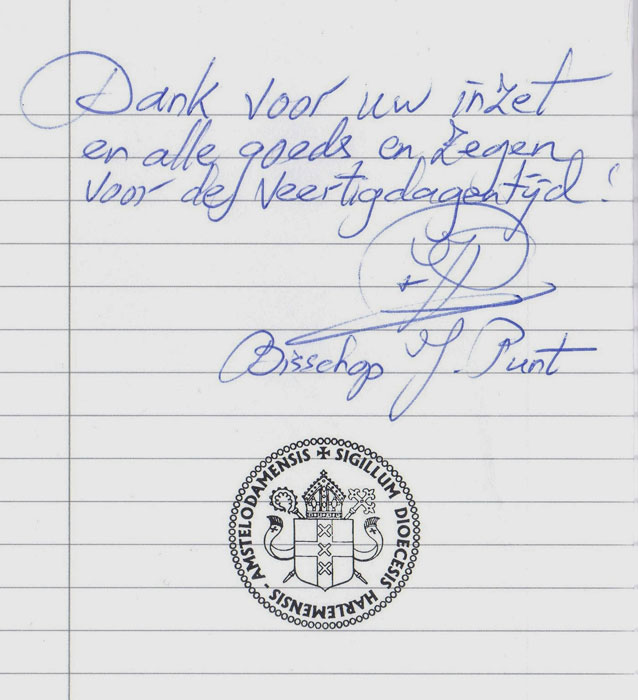 Dank voor uw inzet
en alle goeds en zegen
voor de Veertigdagentijd!
Bisschop J. Punt
✠ SIGILLUM DIOECESIS HARLEMENSIS - AMSTELODAMENSIS